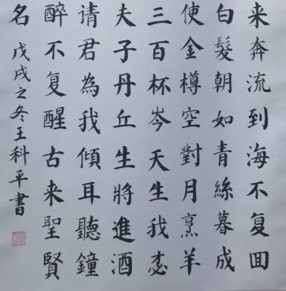 来奔流到海不复回
白髮朝如青絲暮成
使金樽空對月烹羊
三百杯岑天生我
夫子丹丘生將進酒
请君為我傾耳聽鐘
醉不复醒古来聖賢
名 戊戌之冬王科平書